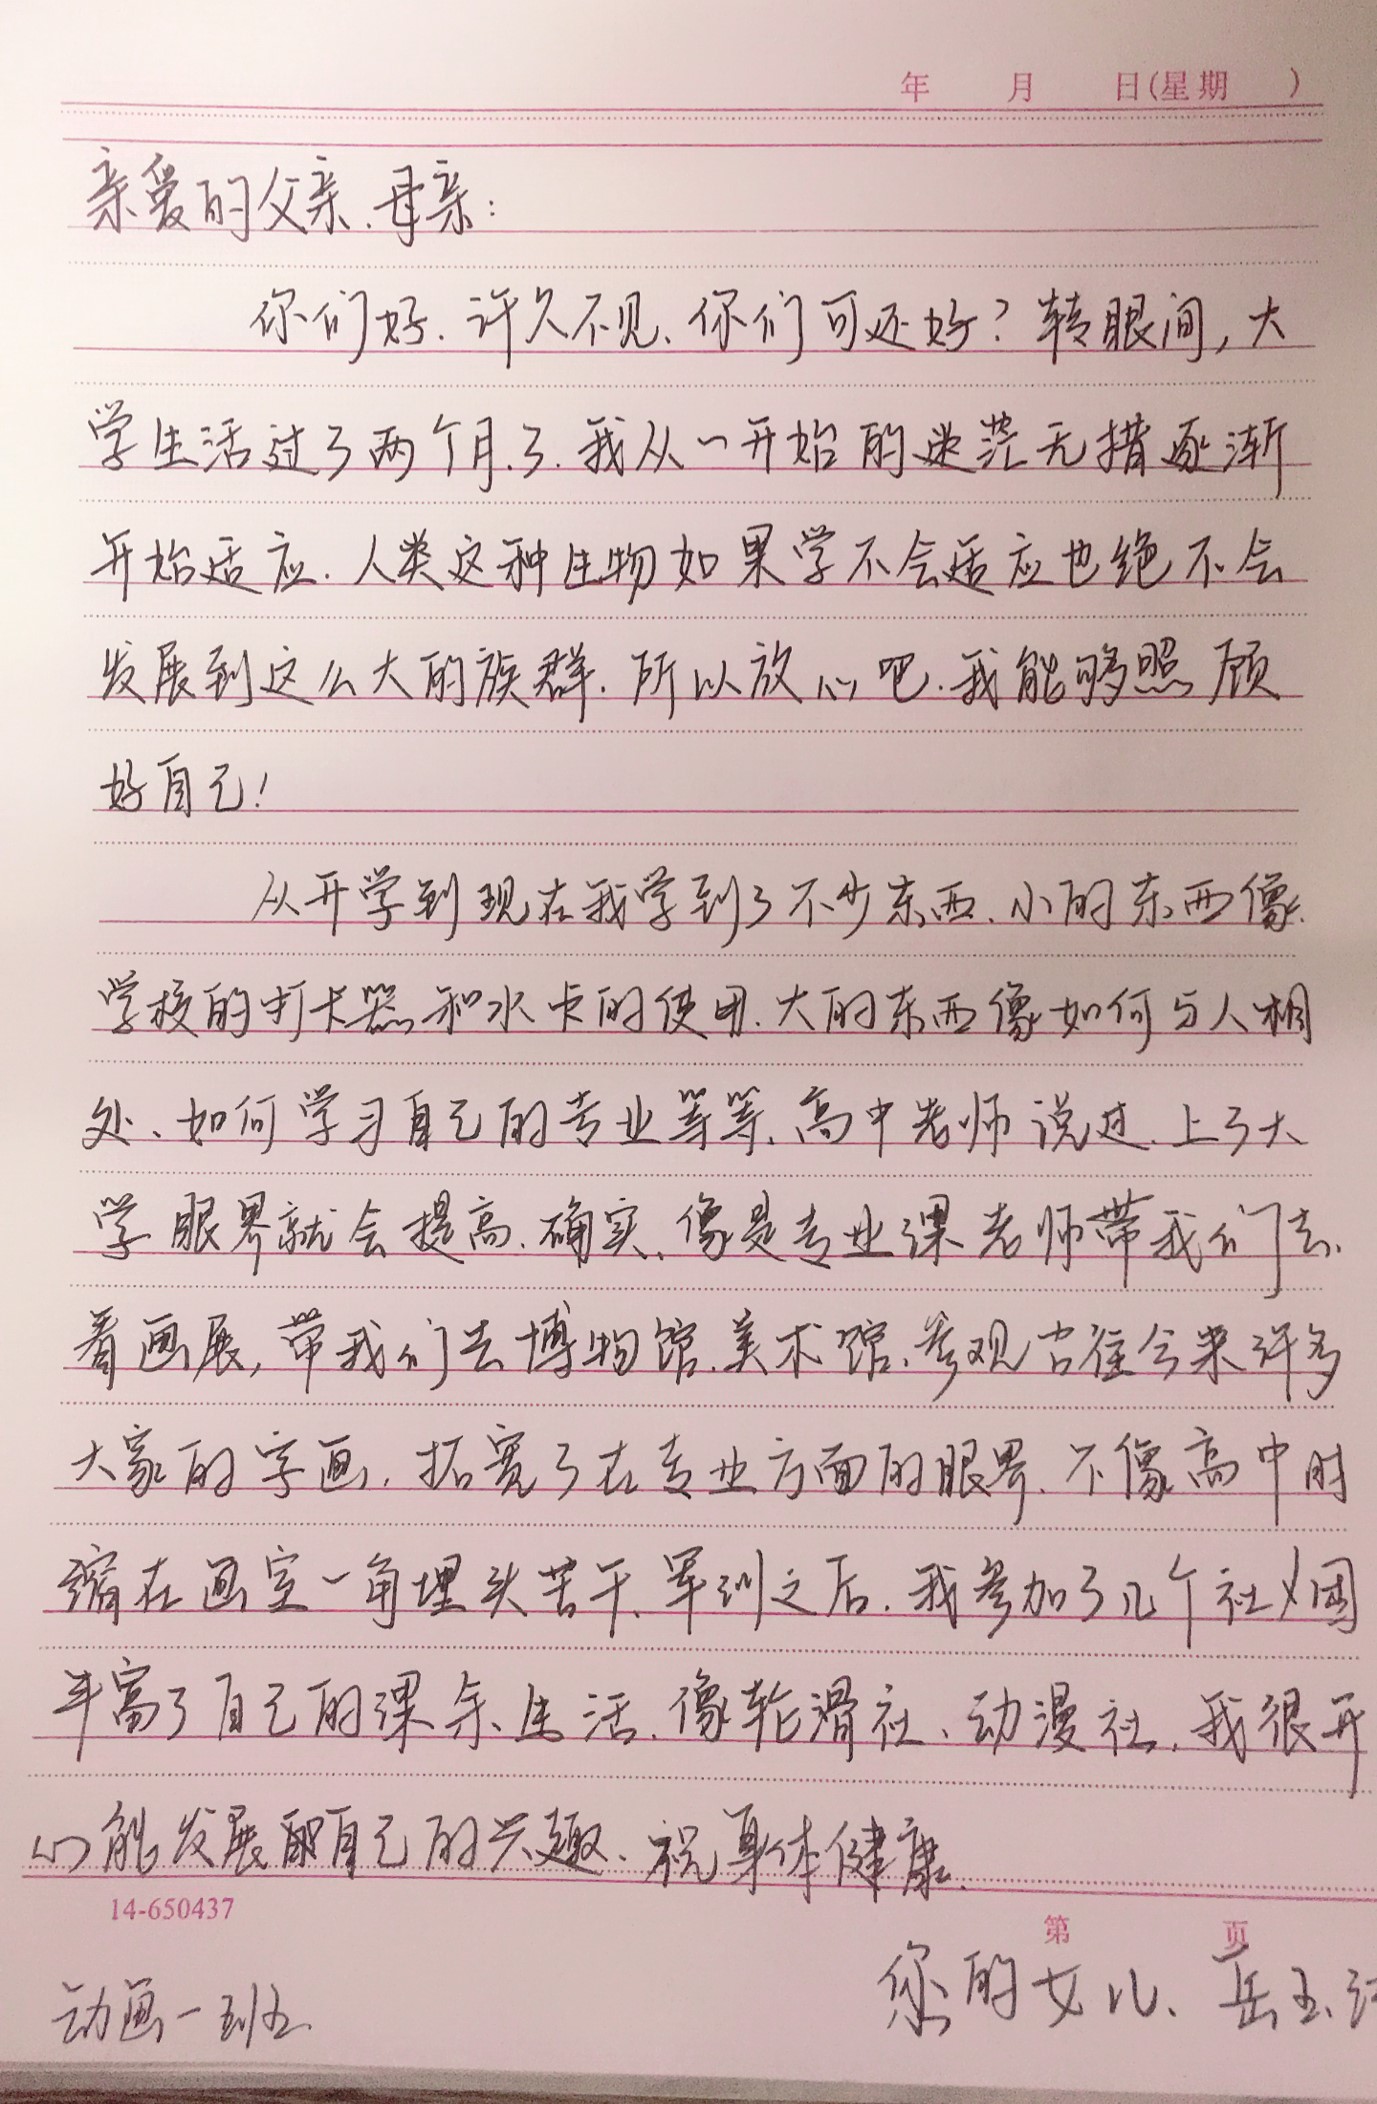 年 月 日(星期 )
亲爱的父亲、母亲:
你们好.许久不见、你们可还好?转眼间,大
学生活过了两个月了.我从一开始的迷茫无措逐渐
开始适应.人类这种生物如果学不会适应也绝不会
发展到这么大的族群.所以放心吧.我能够照顾
好自己!
从开学到现在我学到了不少东西、小的东西像
学校的打卡器和水卡的使用.大的东西像如何与人相
处、如何学习自己的专业等等.高中老师说过.上了大
学眼界就会提高.确实、像是专业课老师带我们去
看画展,带我们去博物馆.美术馆、参观古往今来许多
大家的字画.拓宽了在专业方面的眼界.不像高中时
缩在画室一角埋头苦干.军训之后.我参加了几个社团
丰富了自己的课余生活.像轮滑社、动漫社.我很开
心能发展自己的兴趣.祝身体健康.
14-650437
第 页
动画一班
您的女儿、岳玉